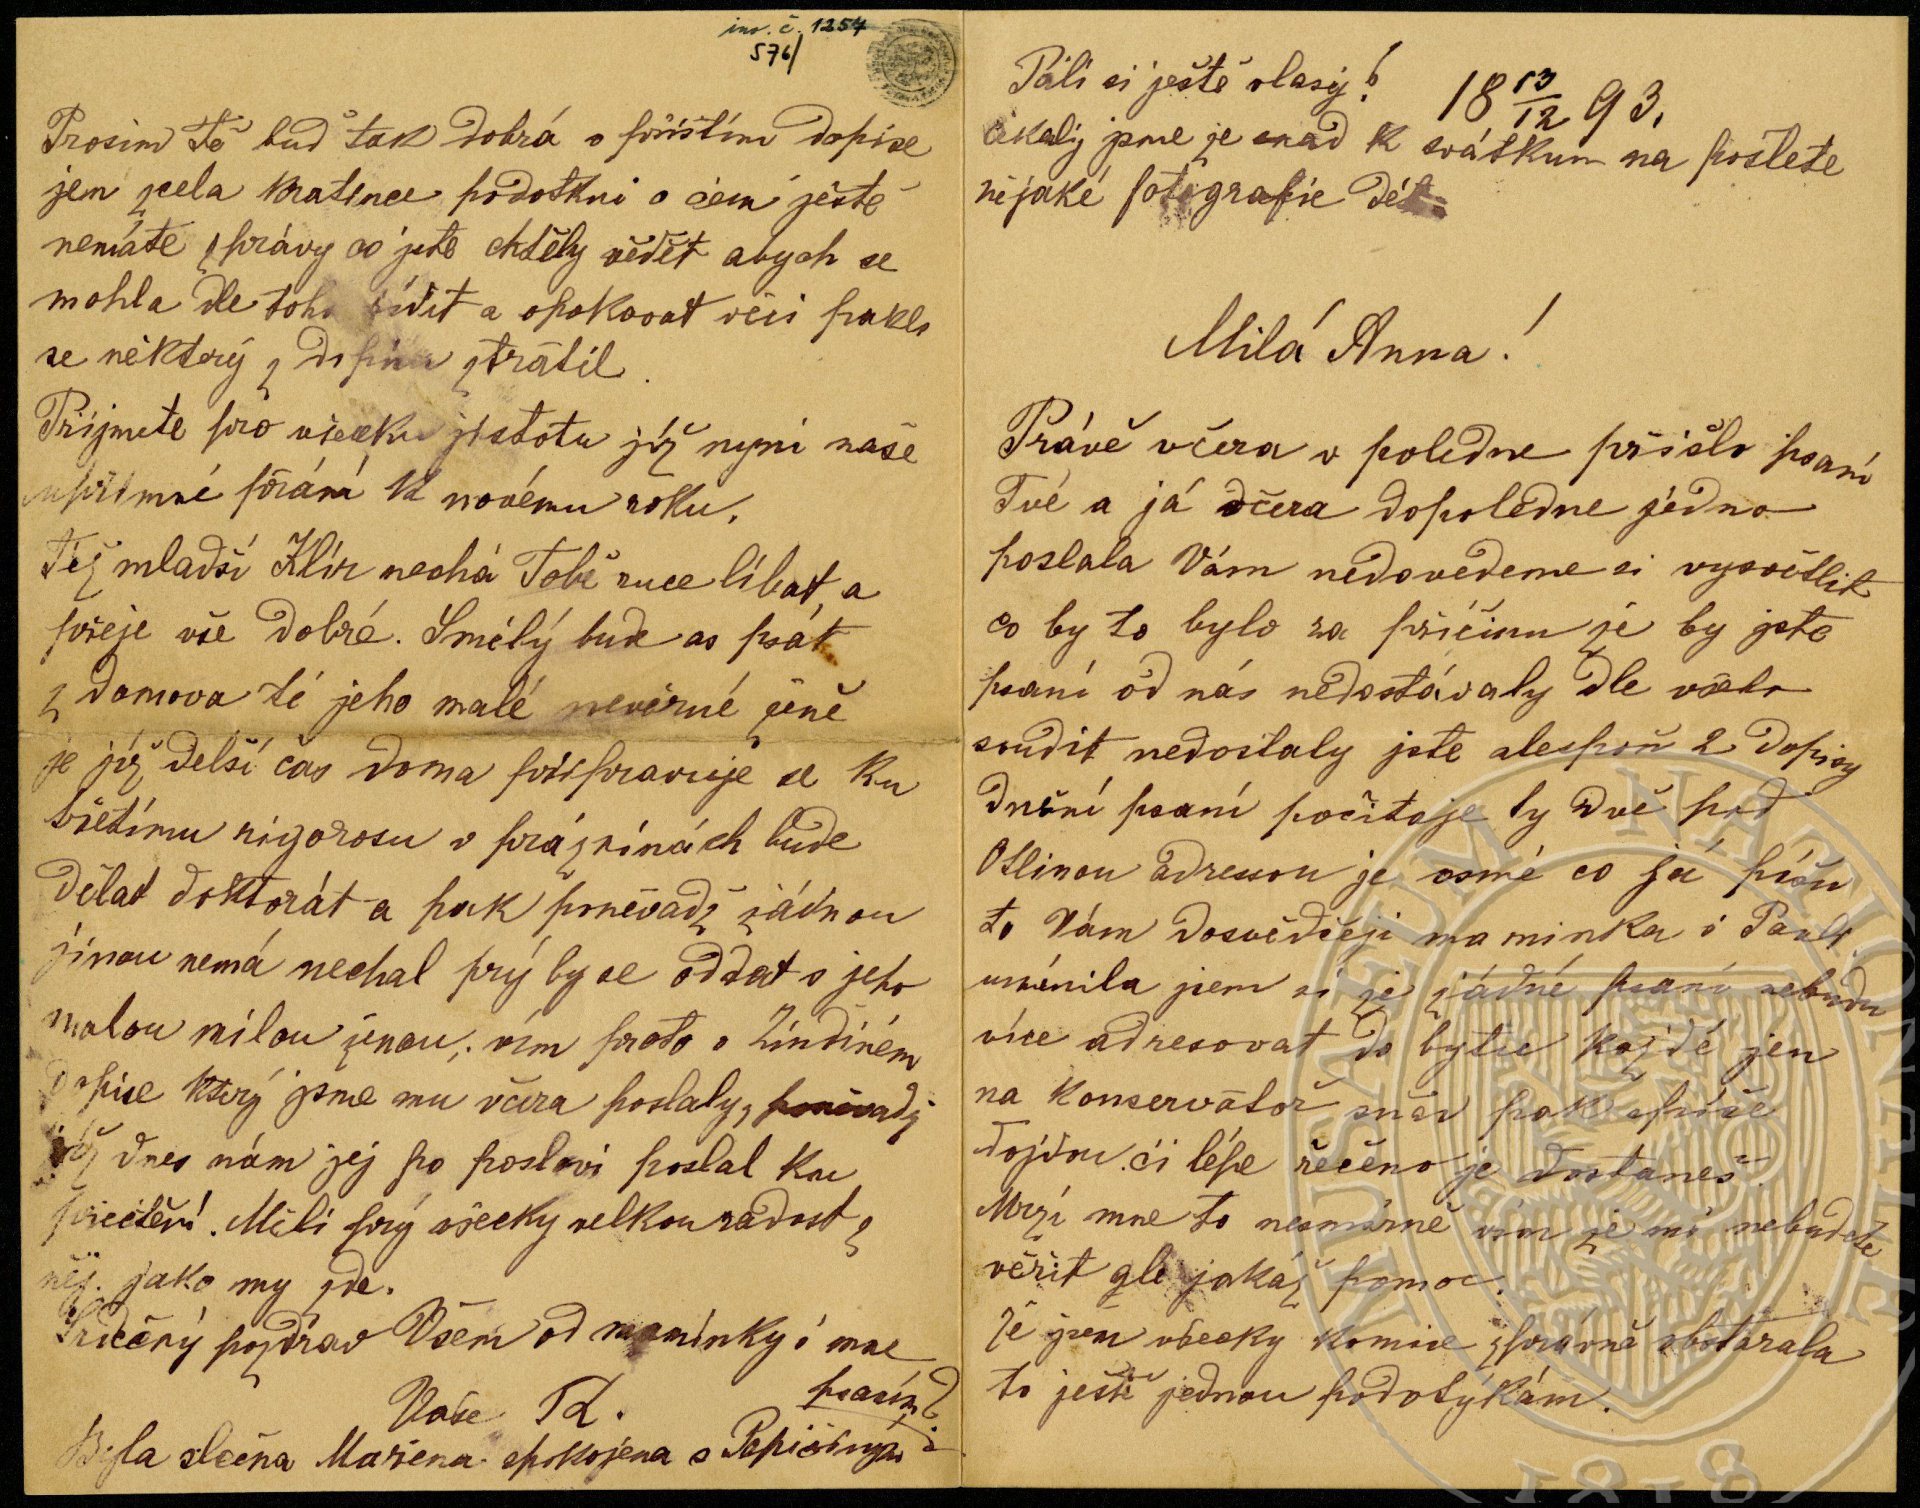 Páli si ještě vlasy?
18 13/12 93.
čekaly jsme je snad k svátkum na pošlete
nějaké fotografie dět
Milá Anna!
Právě včera v poledne přišlo psaní
Tvé a já včera dopoledne jedno
poslala Vám nedovedeme si vysvětlit
co by to bylo za příčinu že by jste
psaní od nás nedostávaly dle všeho
soudit nedostaly jste alespoň 2 dopisy
dnešní psaní počitaje ty dvě pod
Otlinou adressou je osmé co já píšu
to Vám dosvědčeji maminka i
umínila jsem si že žádné psaní nebudu
více adresovat do bytu každé jen
na Konservatoř snad pak spíše
dojdou či lépe řečeno je dostaneš.
Mrzí mne to nesmírně vím že mi nebudete
věřit gle jakáž pomoc.
Že jsem všecky komise správně obstarala
to ještě jednou podotýkám.
inv. č. 1254
576/
Prosim Tě buď tak dobrá v příštím dopise
jen zcela kratince podotkni o čem ještě
nemáte zprávy co jste chtěly vědět abych se
mohla dle toho řídit a opakovat věci pakli
se některý z dopisu ztrátil.
Přijmete pro všecku jistotu již nyni naše
upřímné přání k novému roku.
Též mladší Klír nechá Tobě ruce líbat a
přeje vše dobré. Smělý bude as psát
z domova té jeho malé nevěrné ženě
je již delší čas doma připravuje se ku
třetímu rigorosu v prázninách bude
dělat doktorát a pak poněvadž žádnou
jinou nemá nechal prý by se oddat s jeho
malou milou ženou; vím proto o Zindiném
dopise který jsme mu včera poslaly, poněvadž
již dnes nám jej po poslovi poslal ku
přečtění. Měli prý všecky velkou radost z
něj jako my zde.
Srdečný pozdrav Všem od maminky i mne
Vaše TK.
Byla slečna Mařena spokojena s Pepičiným
psaním?
NATIONALE
MUSAEUM
1818